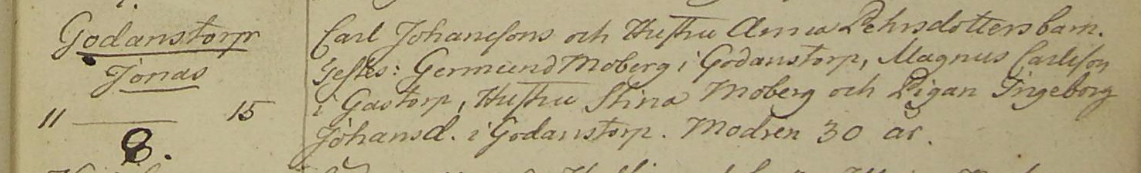 Godanstorp
Jonas
11 15
8.
Carl Johanssons och Hustru Anna Pehrsdotters barn.
Testes: Germund Moberg i Godanstorp, Magnus Carlsson
i Gastorp, Hustru Stina Moberg och Pigan Ingeborg
Johansd. i Godanstorp. Modren 30 år.